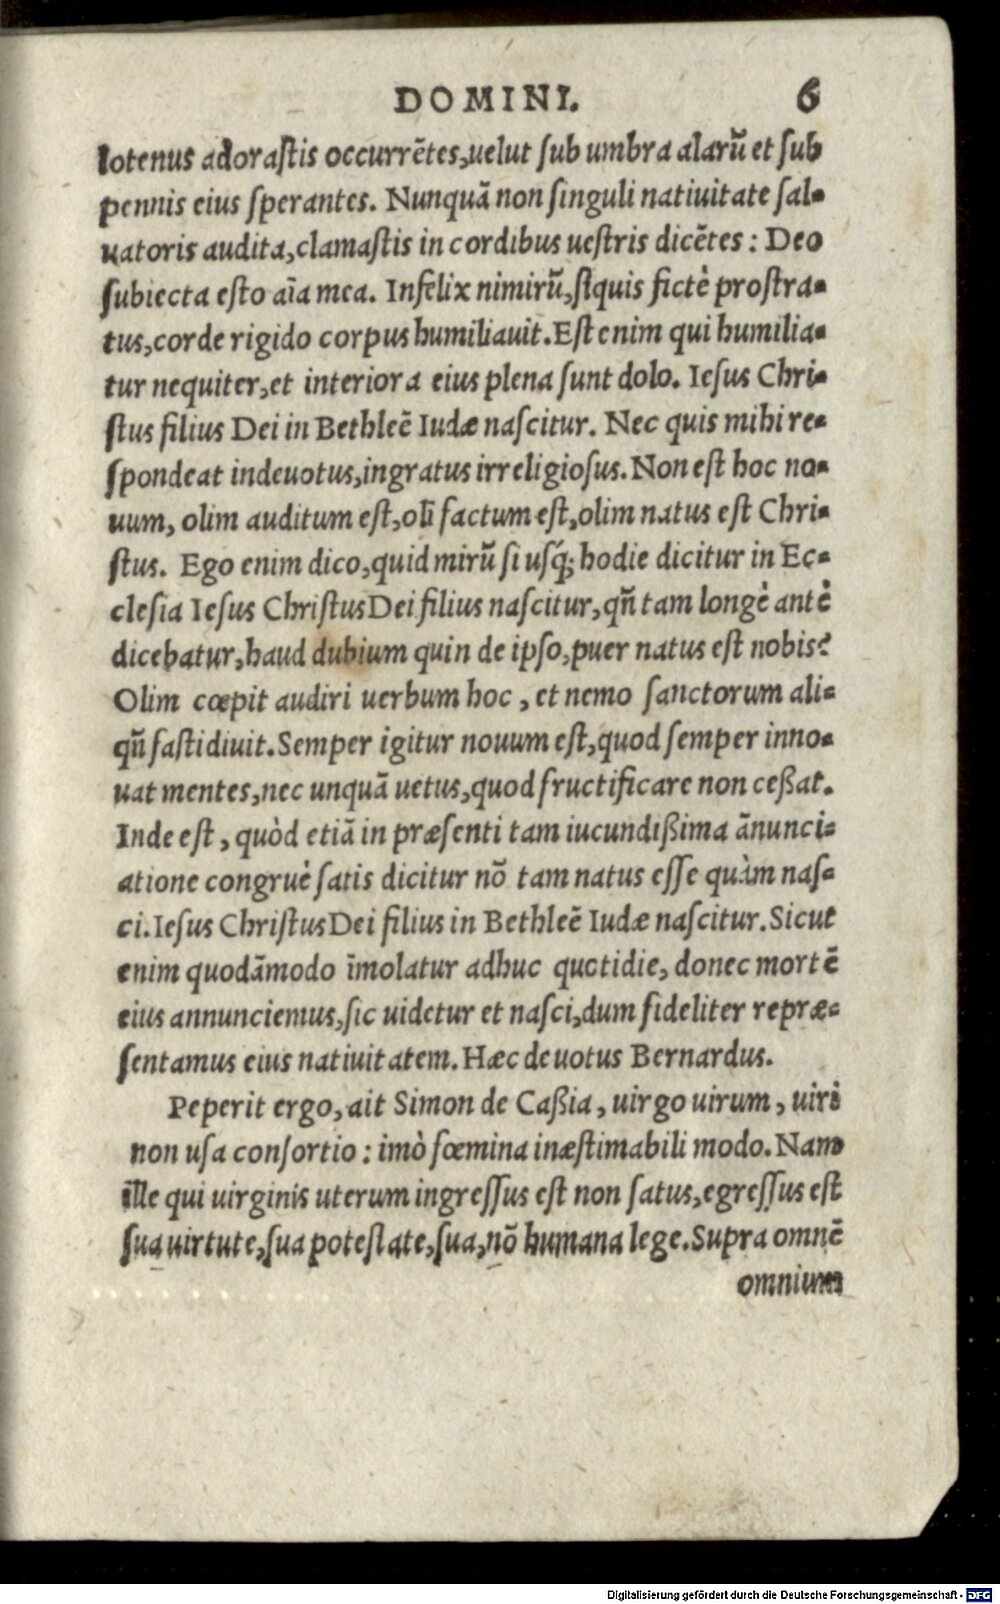 DOMINI. 6
lotenus adoraſtis occurrētes,uelut ſub umbra alarū et ſub
pennis eius ſperantes. Nunquā non ſinguli natiuitate ſal-
uatoris audita,clamaſtis in cordibus ueſtris dicētes: Deo
ſubiecta eſto aīa mea. Infelix nimirū,ſiquis fictè proſtra-
tus,corde rigido corpus humiliauit. Eſt enim qui humilia-
tur nequiter,et interiora eius plena ſunt dolo. Ieſus Chri-
ſtus filius Dei in Bethleē Iudæ naſcitur. Nec quis mihi re-
ſpondeat indeuotus,ingratus irreligioſus. Non eſt hoc no-
uum, olim auditum eſt,oli factum eſt,olim natus eſt Chri-
ſtus. Ego enim dico,quid mirū ſi uſq́; hodie dicitur in Ec-
cleſia Ieſus Chriſtus Dei filius naſcitur,qn̄ tam longè antè
dicebatur,haud dubium quin de ipſo,puer natus eſt nobis?
Olim cœpit audiri uerbum hoc , et nemo ſanctorum ali-
qn̄ faſtidiuit. Semper igitur nouum eſt,quod ſemper inno-
uat mentes,nec unquā uetus,quod fructificare non ceßat.
Inde eſt , quòd etiā in præſenti tam iucundißima ānunci-
atione congruè ſatis dicitur nō tam natus eſſe quàm naſ-
ci. Ieſus Chriſtus Dei filius in Bethleē Iudæ naſcitur. Sicut
enim quodāmodo īmolatur adhuc quotidie, donec mortē
eius annunciemus,ſic uidetur et naſci,dum fideliter repræ-
ſentamus eius natiuitatem. Hæc deuotus Bernardus.
Peperit ergo,ait Simon de Caßia , uirgo uirum , uiri
non uſa conſortio : imò fœmina inæſtimabili modo. Nam
ille qui uirginis uterum ingreſſus eſt non ſatus,egreſſus eſt
ſua uirtute,ſua poteſtate,ſua,nō humana lege. Supra omnē
omnium
Digitalisierung gefördert durch die Deutsche Forschungsgemeinschaft - DFG